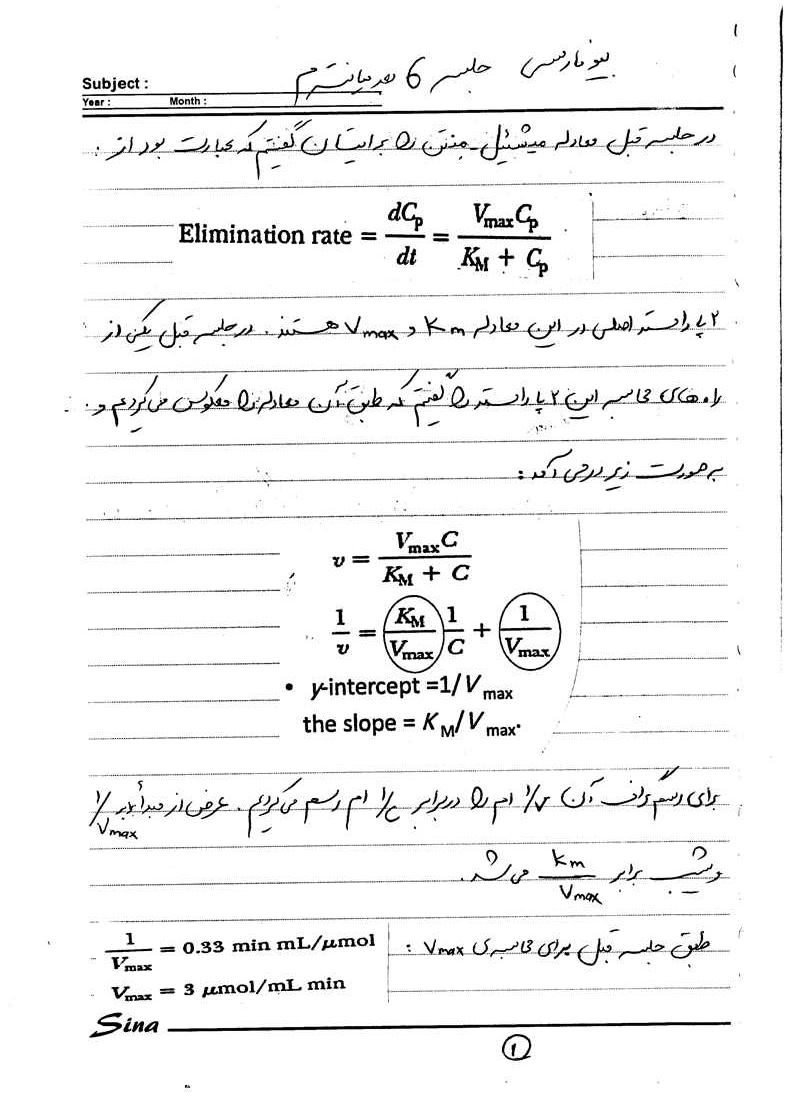 بیوفارسی جلسه 6 بعد میانترم
Subject :
Year : Month :
در جلسه قبل معادله میشئیل_منتن را برایتان گفتیم که عبارت بود از :
Elimination rate = dCp/dt = VmaxCp / (KM + Cp)
۲ پارامتر اصلی در این معادله Km و Vmax هستند. در جلسه قبل یکی از
راه های محاسبه این ۲ پارامتر را گفتیم که طبق آن معادله را معکوس می کردیم و
به صورت زیر در می آمد :
v = VmaxC / (KM + C)
1/v = (KM/Vmax) 1/C + 1/Vmax
• y-intercept =1/Vmax
the slope = KM/Vmax.
برای رسم گراف آن 1/v ام را در برابر 1/c ام رسم می کردیم. عرض از مبدأ برابر 1/Vmax
و شیب برابر Km/Vmax می شد.
طبق جلسه قبل برای محاسبه ی Vmax :
1/Vmax = 0.33 min mL/μmol
Vmax = 3 μmol/mL min
Sina
۱